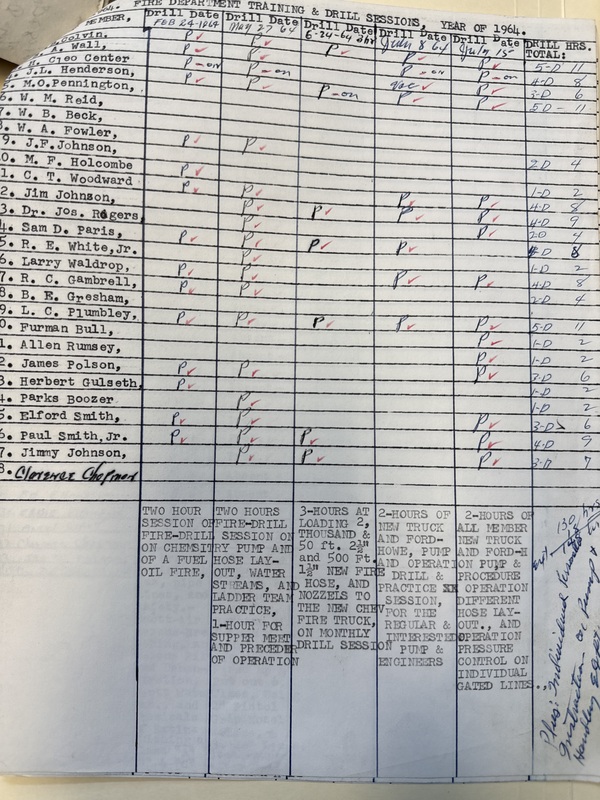 FIRE DEPARTMENT TRAINING & DRILL SESSIONS, YEAR OF 1964.
MEMBER, Drill Date Drill Date Drill Date Drill Date Drill Date DRILL HRS.
FEB 24-1964 May 27 64 6-24-64 3hr July 8 64 July 15 TOTAL:
Wall, P P P P P 5-D 11
Cleo Center P-on P P P 4-D 8
J.L. Henderson, P P-on P-on P-on 3-D 6
M.O.Pennington, P P P-on Vac P 5D-11
W. M. Reid, P
7. W. B. Beck,
W. A. Fowler,
9. J.F.Johnson, P P 2D 4
0. M. F. Holcombe
1. C. T. Woodward P 1-D 2
2. Jim Johnson, P P P P 4-D 8
3. Dr. Jos. Rogers, P P P P 4-D 9
4. Sam D. Paris, P P 2D 4
5. R. E. White,Jr. P P P P 4-D 8
6. Larry Waldrop, P 1-D 2
7. R. C. Gambrell, P P P P 4-D 8
8. B. E. Gresham, P P 2-D 4
9. L. C. Plumbley,
0. Furman Bull, P P P P P 5-D 11
1. Allen Rumsey, P 1-D 2
2. James Polson, P 1-D 2
3. Herbert Gulseth, P P P 3-D 6
4. Parks Boozer P 1-D 2
5. Elford Smith, P 1-D 2
6. Paul Smith,Jr. P P P 3-D 6
7. Jimmy Johnson, P P P P 4-D 9
8. Clarence Chapman P P P 3-D 7
TWO HOUR TWO HOURS 3-HOURS AT 2-HOURS OF 2-HOURS OF
SESSION OF FIRE-DRILL LOADING 2, NEW TRUCK ALL MEMBER
FIRE-DRILL SESSION ON THOUSAND & AND FORD- NEW TRUCK
ON CHEMISTRY PUMP AND 50 ft. 2½" HOWE, PUMP AND FORD-H
OF A FUEL HOSE LAY- and 500 Ft. AND OPERATION PUMP &
OIL FIRE, OUT, WATER 1½" NEW FIRE DRILL & PROCEDURE
STREAMS, AND HOSE, AND PRACTICE XX OPERATION
LADDER TEAM NOZZELS TO SESSION, DIFFERENT
PRACTICE, THE NEW CHEV FOR THE HOSE LAY-
1-HOUR FOR FIRE TRUCK, REGULAR & OUT., AND
SUPPER MEET ON MONTHLY INTERESTED OPERATION
AND PRECEDER DRILL SESSION PUMP & PRESSURE
OF OPERATION ENGINEERS CONTROL ON
INDIVIDUAL
GATED LINES.
Plus: Individual
Instruction on pump &
Handling